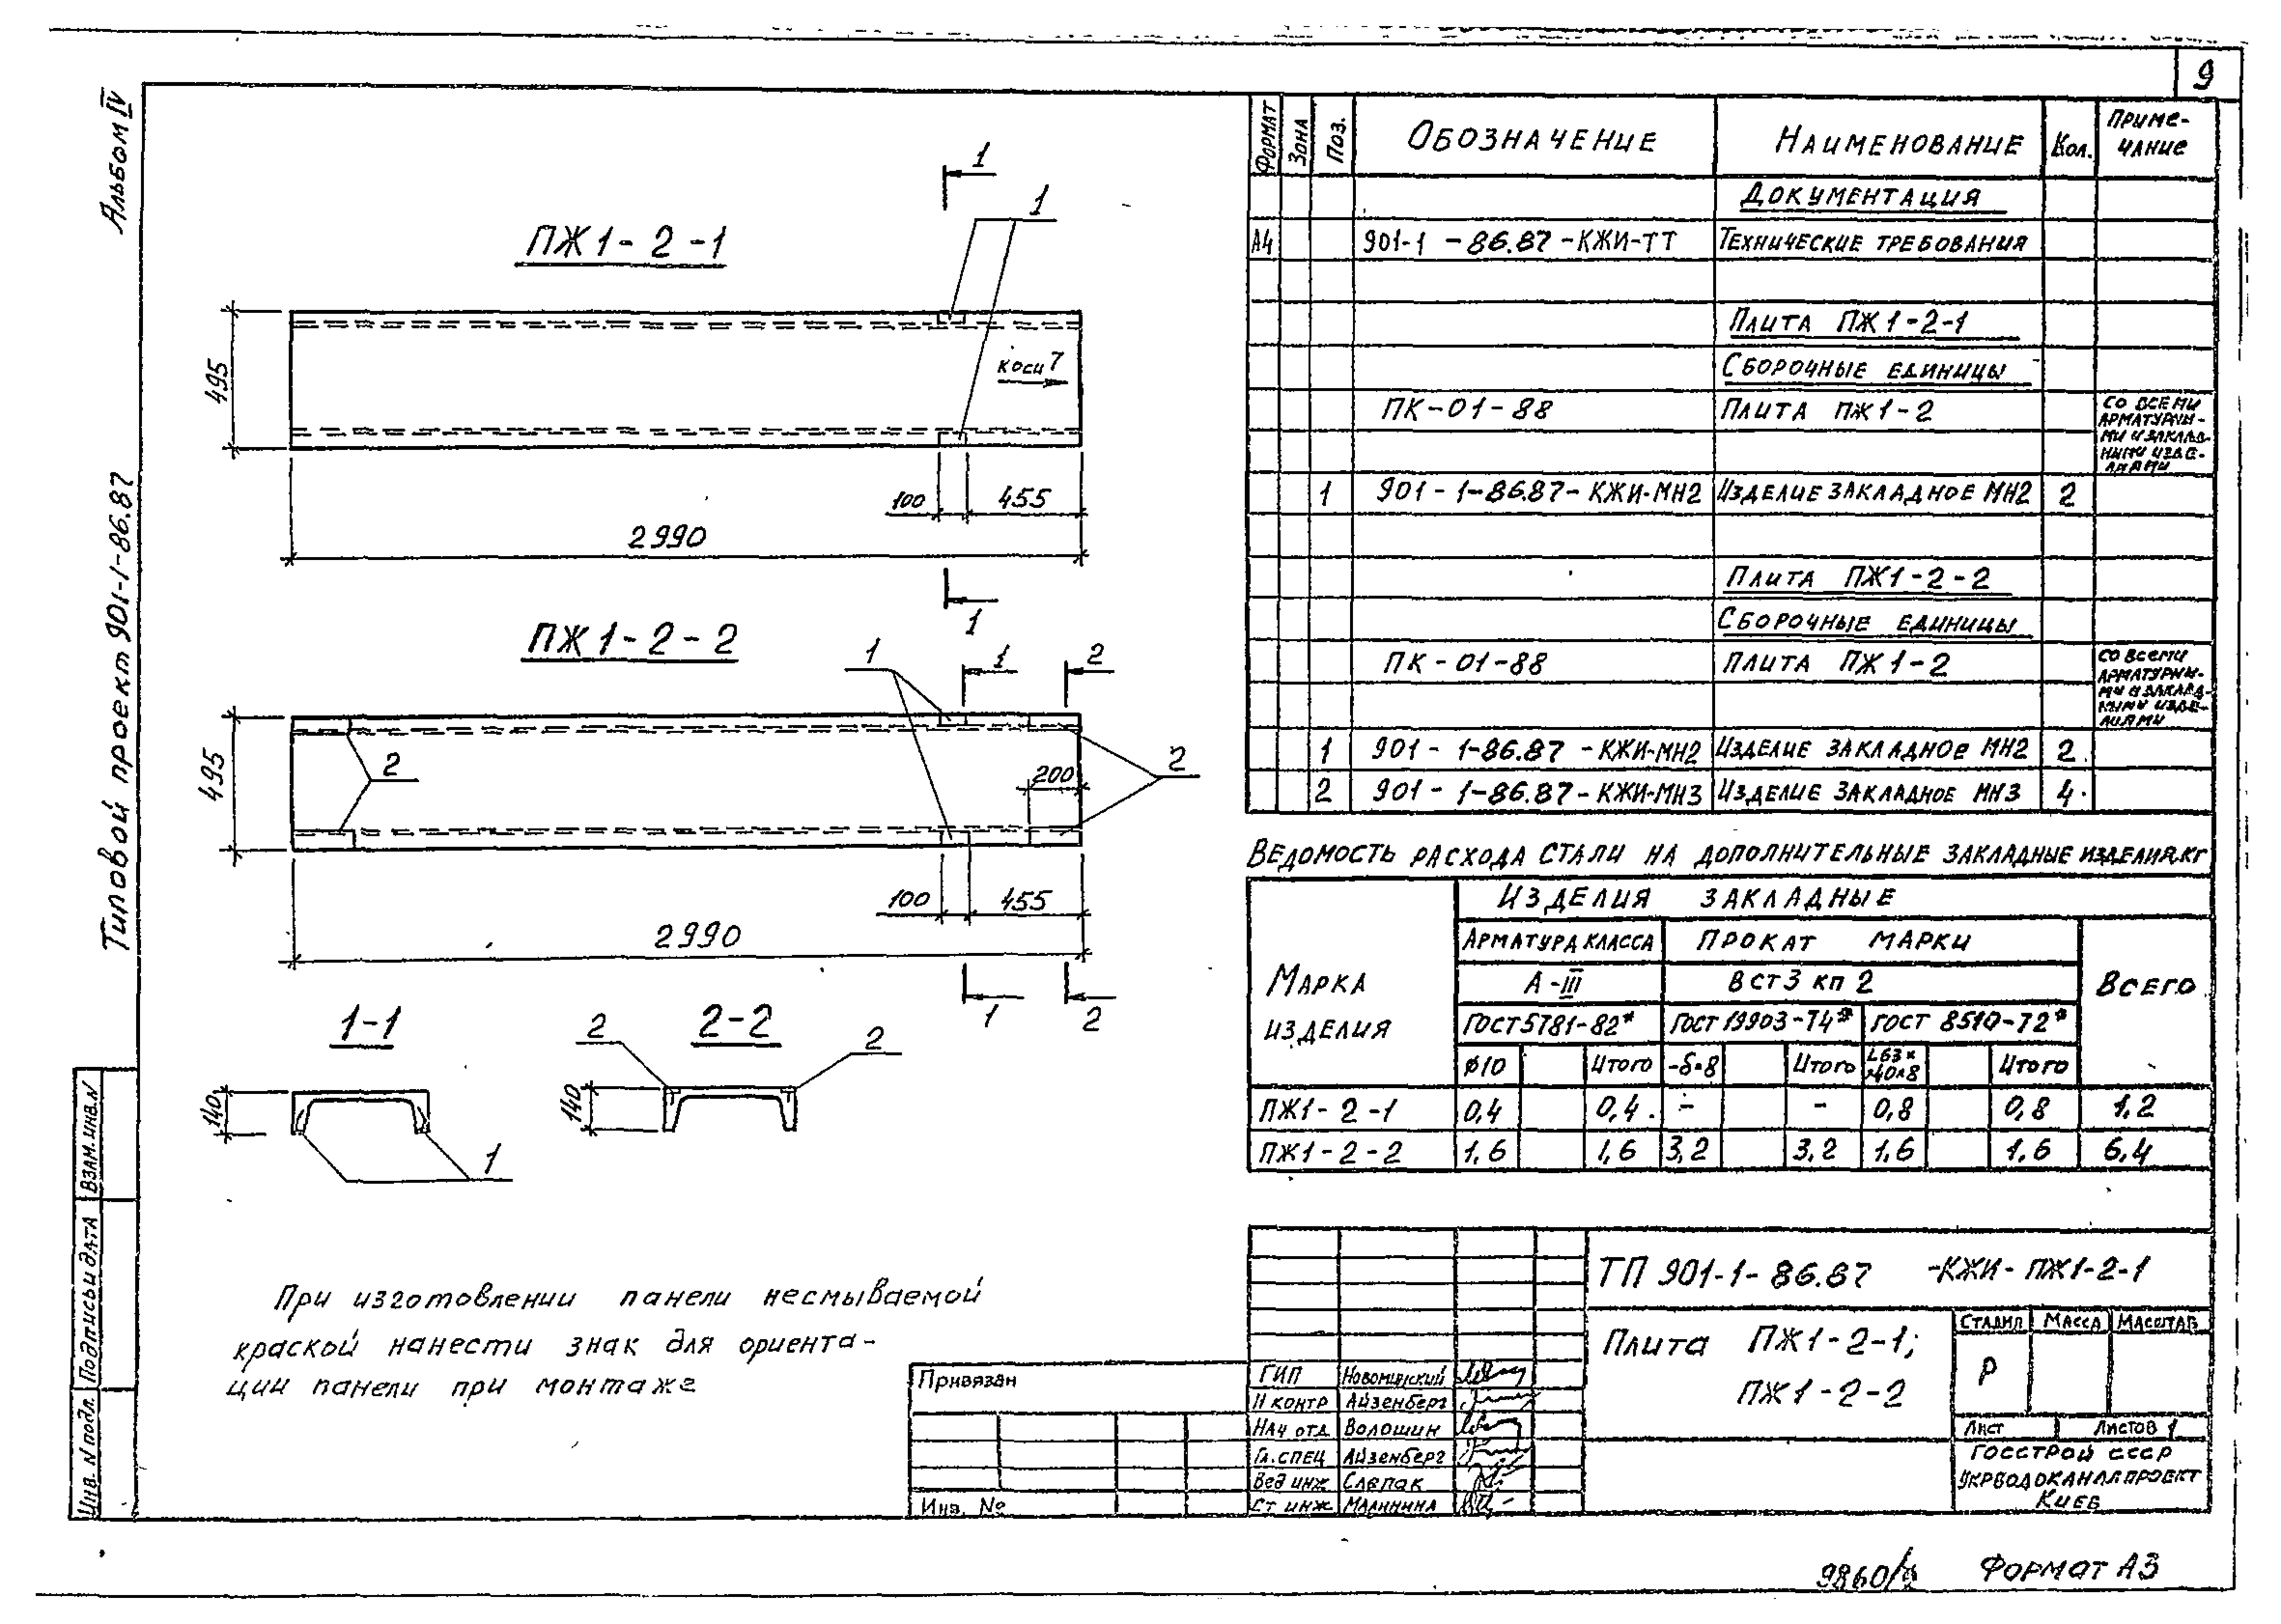 9
Альбом IV
Типовой проект 901-1-86.87
Взам. инв. N
Подпись и дата
Инв. N подл.
ПЖ1-2-1
1
1
495
к оси 7
100
455
2990
1
ПЖ1-2-2
1
1
2
2
2
495
200
100
455
2990
1
2
1-1
140
1
2-2
2
2
140
При изготовлении панели несмываемой
краской нанести знак для ориента-
ции панели при монтаже
Формат
Зона
Поз.
Обозначение
Наименование
Кол.
Приме-
чание
Документация
А4
901-1-86.87-КЖИ-ТТ
Технические требования
Плита ПЖ1-2-1
Сборочные единицы
ПК-01-88
Плита ПЖ1-2
со всеми
арматурны-
ми и заклад-
ными изде-
лиями
1
901-1-86.87-КЖИ-МН2
Изделие закладное МН2
2
Плита ПЖ1-2-2
Сборочные единицы
ПК-01-88
Плита ПЖ1-2
со всеми
арматурны-
ми и заклад-
ными изде-
лиями
1
901-1-86.87-КЖИ-МН2
Изделие закладное МН2
2
2
901-1-86.87-КЖИ-МН3
Изделие закладное МН3
4
Ведомость расхода стали на дополнительные закладные изделия, кг
Марка
изделия
Изделия закладные
Арматура класса
Прокат марки
Всего
А-III
Вст3 кп 2
ГОСТ 5781-82*
ГОСТ 19903-74*
ГОСТ 8510-72*
ϕ10
Итого
-δ=8
Итого
L63×
×40×8
Итого
ПЖ1-2-1 0,4 0,4 - - 0,8 0,8 1,2
ПЖ1-2-2 1,6 1,6 3,2 3,2 1,6 1,6 6,4
ТП 901-1-86.87 -КЖИ-ПЖ1-2-1
Плита ПЖ1-2-1;
ПЖ1-2-2
Стадия
Масса
Масштаб
Р
Лист
Листов 1
Госстрой СССР
Укрводоканалпроект
Киев
Привязан
Инв. №
ГИП Новоминский
Н контр Айзенберг
Нач отд Волошин
Гл. спец Айзенберг
Вед инж Слепак
Ст инж Малинина
Формат А3